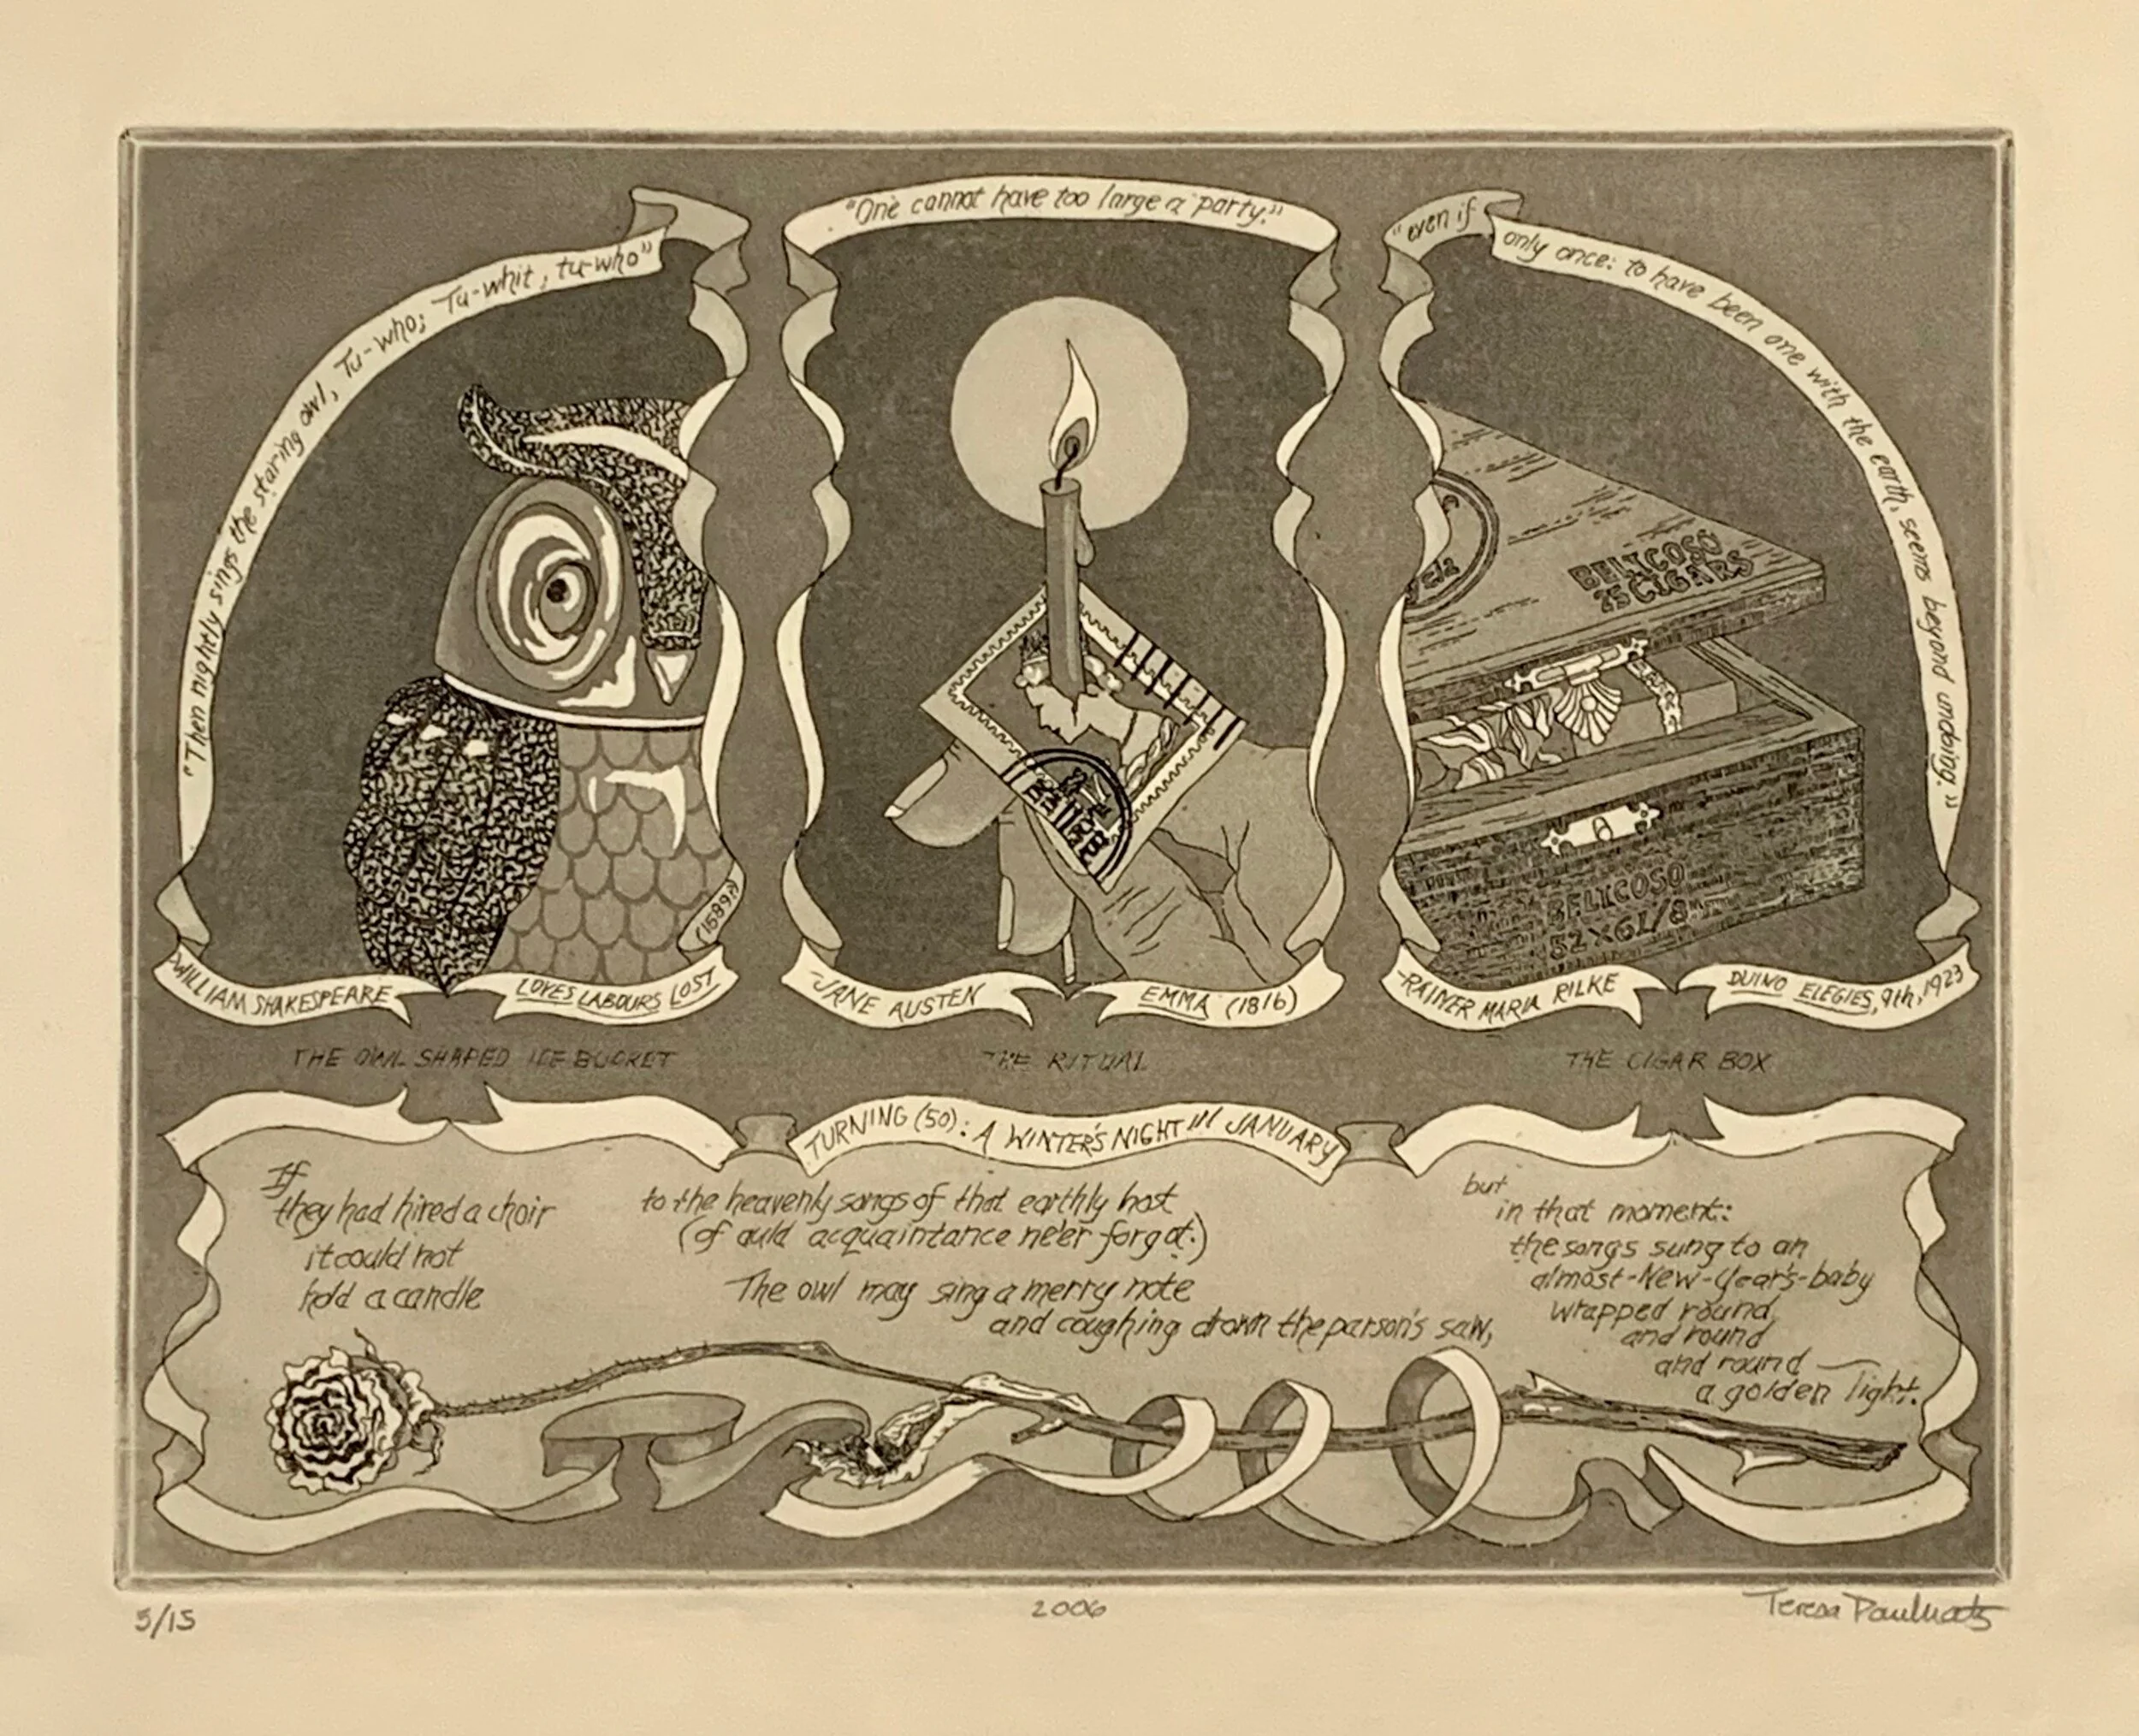 "Then nightly sings the staring owl, Tu-who; Tu-whit, tu-who"
-WILLIAM SHAKESPEARE
LOVES LABOURS LOST
(1589?)
THE OWL SHAPED ICE BUCKET
"One cannot have too large a party."
-JANE AUSTEN
EMMA (1816)
THE RITUAL
"even if only once: to have been one with the earth, seems beyond undoing."
BELICOSO
25 CIGARS
BELICOSO
52 X 6 1/8
-RAINER MARIA RILKE
DUINO ELEGIES, 9th, 1923
THE CIGAR BOX
TURNING (50): A WINTER'S NIGHT in JANUARY
If
they had hired a choir
it could not
hold a candle
to the heavenly songs of that earthly host
(of auld acquaintance ne'er forgot.)
The owl may sing a merry note
and coughing drown the parson's saw,
but
in that moment:
the songs sung to an
almost-New-Year's-baby
wrapped round
and round
and round
a golden light.
5/15
2006
Teresa